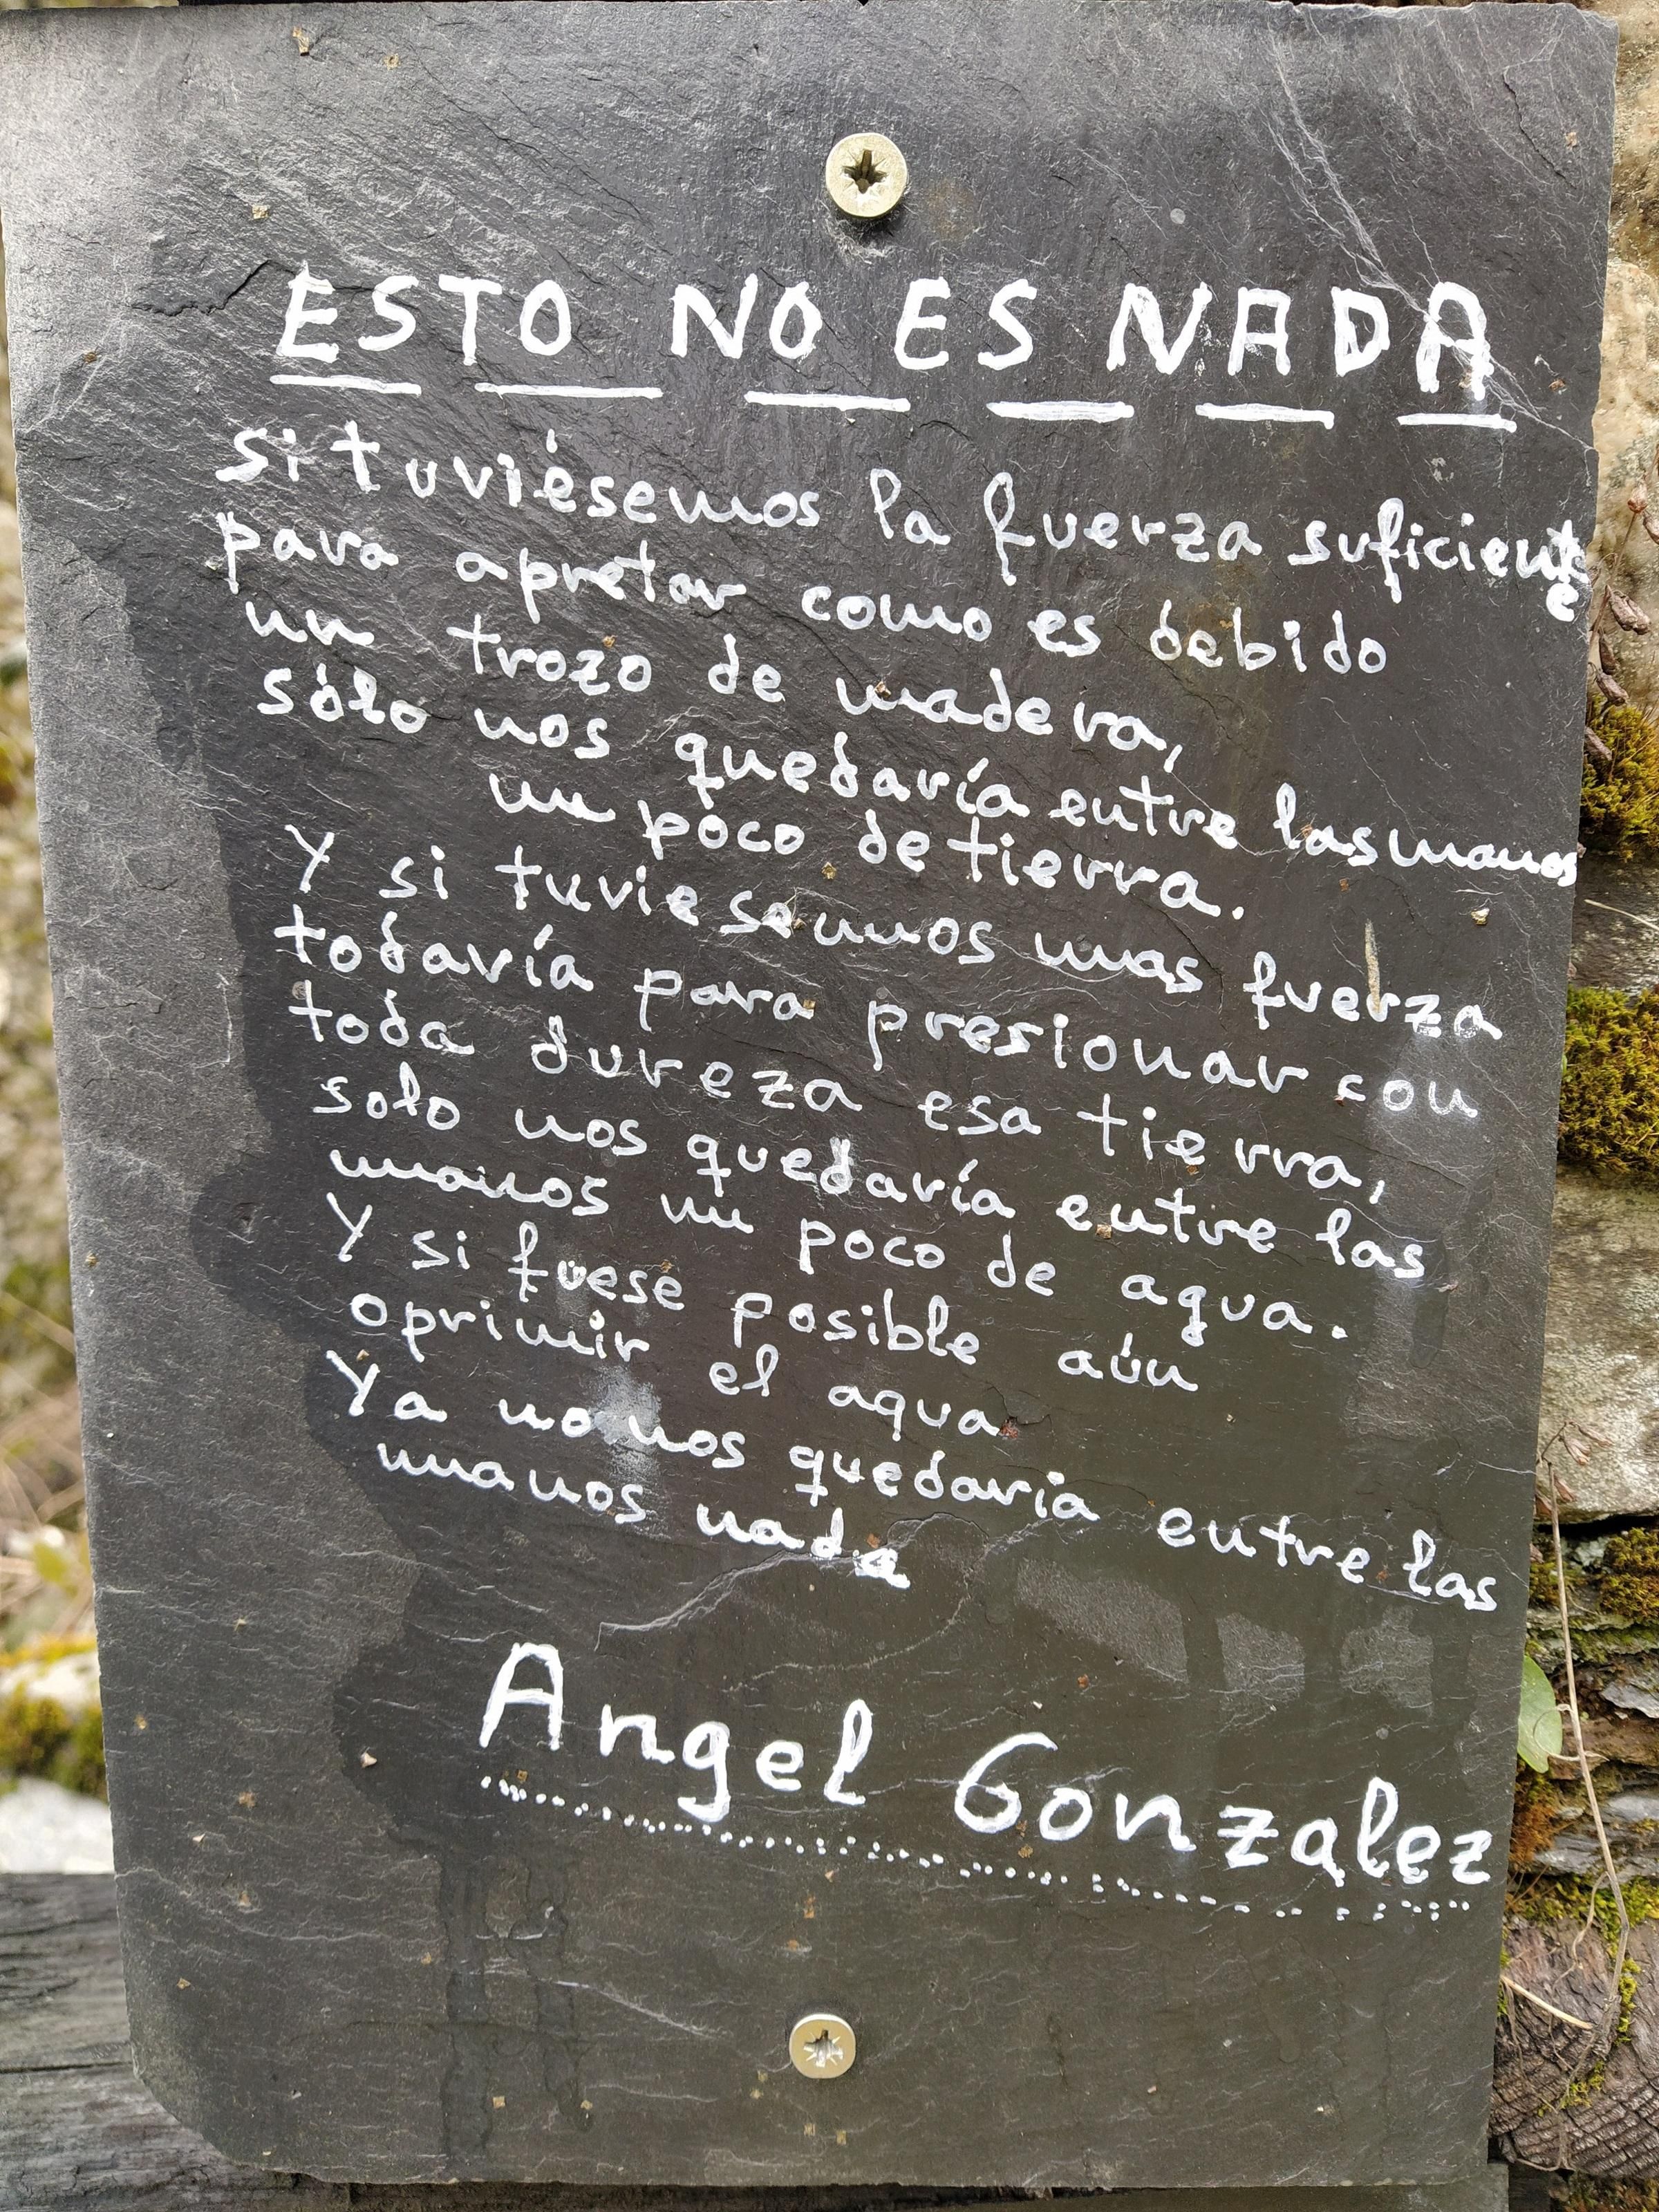 ESTO NO ES NADA
si tuviésemos la fuerza suficiente
para apretar como es debido
un trozo de madera,
sólo nos quedaría entre las manos
un poco de tierra.
Y si tuviesemos mas fuerza
todavía para presionar con
toda dureza esa tierra,
solo nos quedaría entre las
manos un poco de agua.
Y si fuese posible aún
oprimir el agua
Ya no nos quedaria entre las
manos nada
Angel Gonzalez